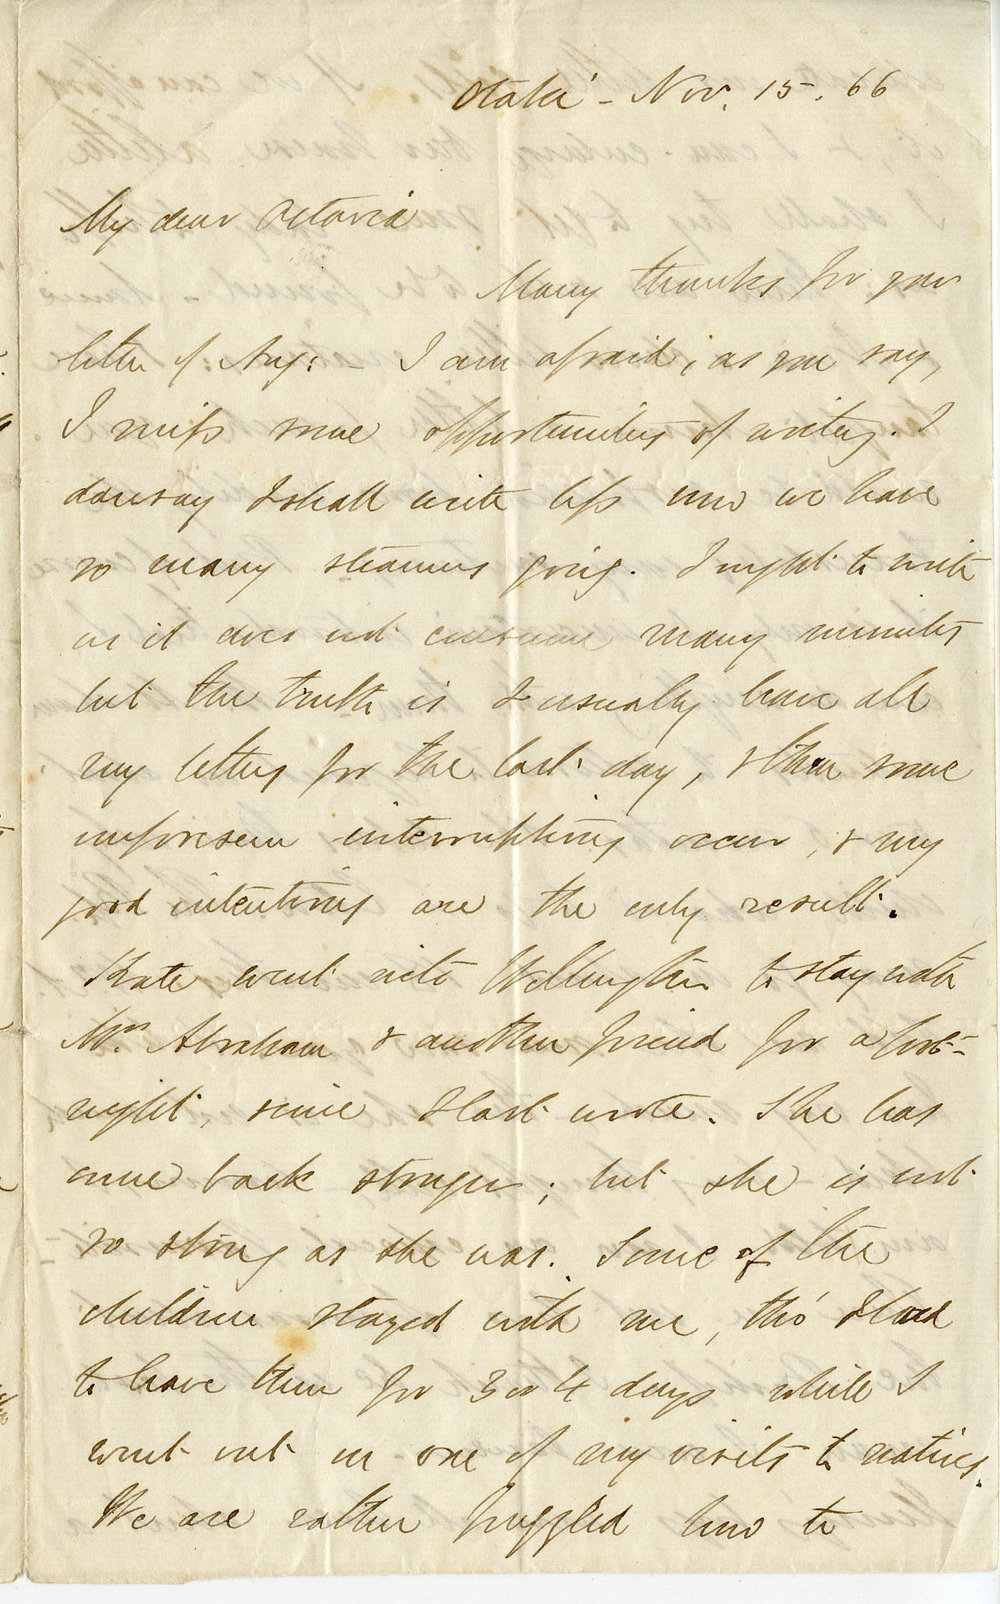 Otaki - Nov. 15. 66
My dear Octavia
Many thanks for your
letter of Aug: - I am afraid, as you say,
I miss some opportunities of writing. I
daresay I shall write less now we have
so many steamers going. I ought to write
as it does not consume many minutes
but the truth is I usually leave all
my letters for the last day, & then some
unforeseen interruptions occur, & my
good intentions are the only result.
Kate went into Wellington to stay with
Mrs. Abraham & another friend for a fort-
night, since I last wrote. She has
come back stronger; but she is not
so strong as she was. Some of the
children stayed with me, tho' I had
to leave them for 3 or 4 days while I
went out on one of my visits to natives.
We are rather puzzled how to